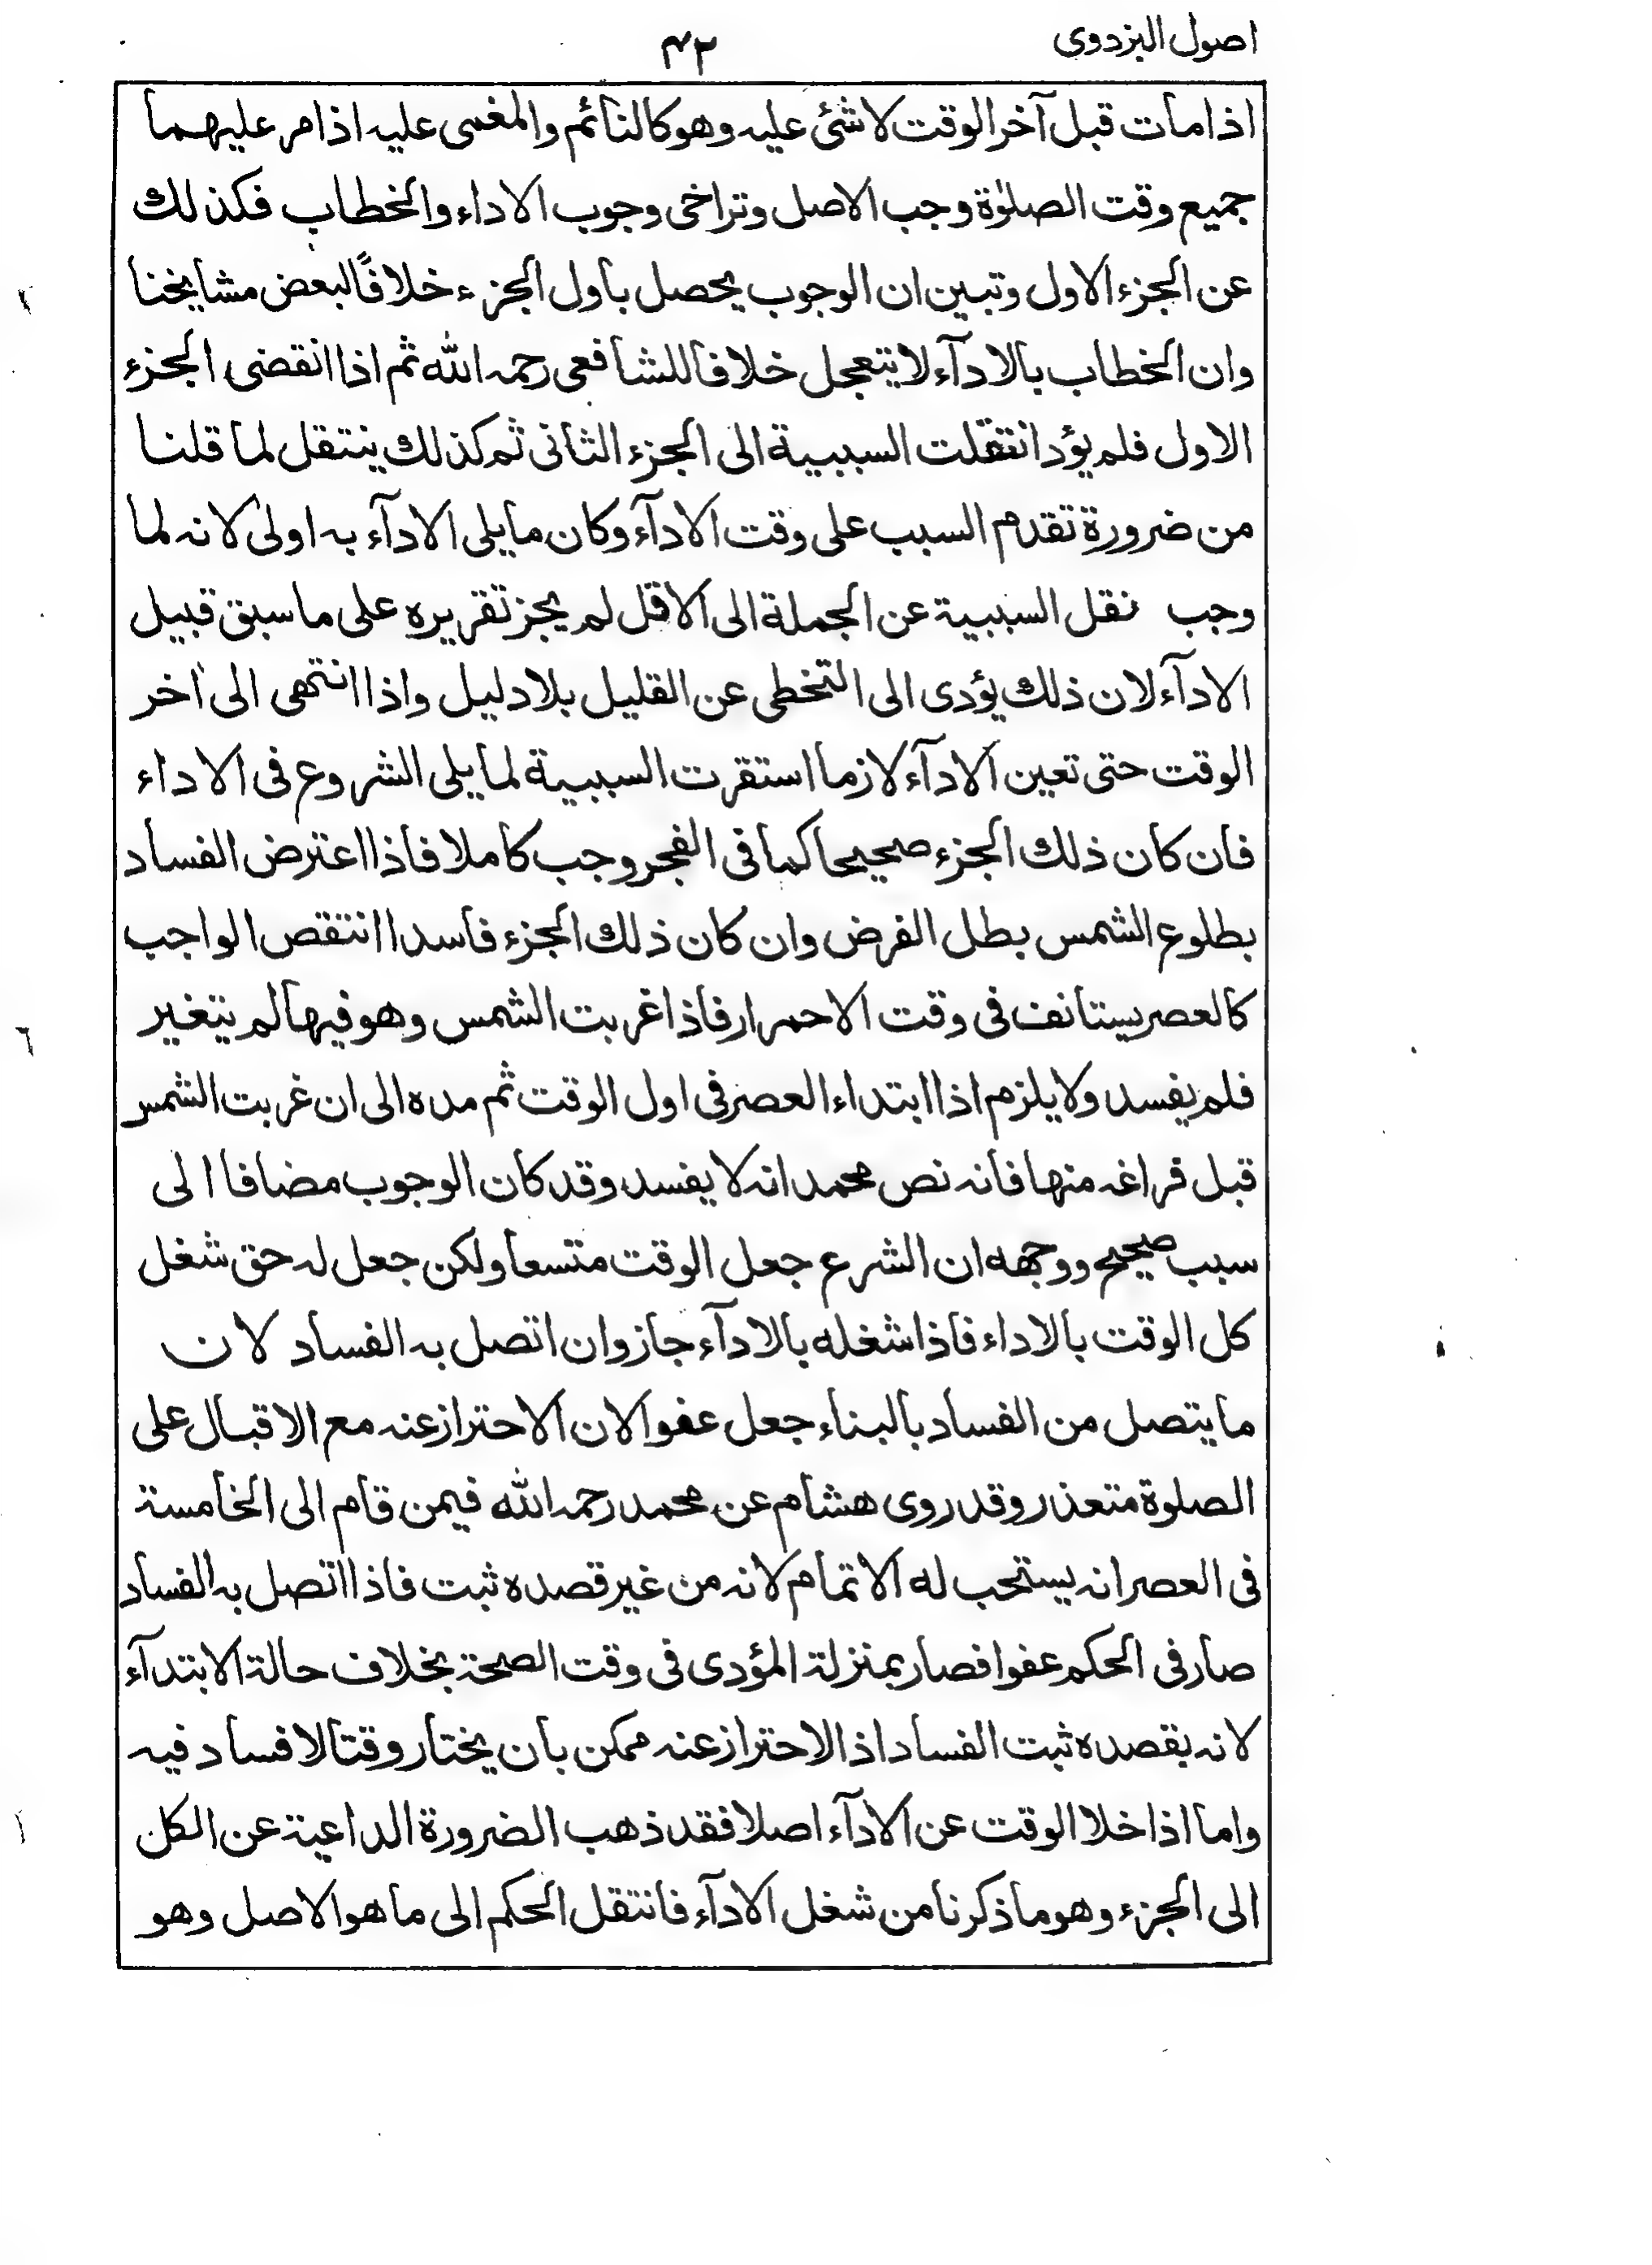 اصول البزدوی
۴۲
اذا مات قبل آخر الوقت لا شئ عليه وهو كالنائم والمغمى عليه اذا مر عليهما
جميع وقت الصلوٰة وجب الاصل وتراخى وجوب الاداء والخطاب فكذلك
عن الجزء الاول وتبين ان الوجوب يحصل باول الجزء خلافًا لبعض مشايخنا
وان الخطاب بالادآء لا يتعجل خلافا للشافعى رحمه الله ثم اذا انقضى الجزء
الاول فلم يؤد انتقلت السببية الى الجزء الثانى ثم كذلك ينتقل لما قلنا
من ضرورة تقدم السبب على وقت الادآء وكان ما يلى الادآء به اولى لانه لما
وجب نقل السببية عن الجملة الى الاقل لم يجز تقريره على ما سبق قبيل
الادآء لان ذلك يؤدى الى التخطى عن القليل بلا دليل واذا انتهى الى اٰخر
الوقت حتى تعين الادآء لازما استقرت السببية لما يلى الشروع فى الاداء
فان كان ذلك الجزء صحيحا كما فى الفجر وجب كاملا فاذا اعترض الفساد
بطلوع الشمس بطل الفرض وان كان ذلك الجزء فاسدا انتقص الواجب
كالعصر يستانف فى وقت الاحمرار فاذا غربت الشمس وهو فيها لم يتغير
فلم يفسد ولا يلزم اذا ابتداء العصر فى اول الوقت ثم مده الى ان غربت الشمس
قبل فراغه منها فانه نص محمد انه لا يفسد وقد كان الوجوب مضافا الى
سبب صحيح ووجهه ان الشرع جعل الوقت متسعا ولكن جعل له حق شغل
كل الوقت بالاداء فاذا شغله بالادآء جاز وان اتصل به الفساد لان
ما يتصل من الفساد بالبناء جعل عفوا لان الاحتراز عنه مع الاقبال على
الصلوة متعذر وقد روى هشام عن محمد رحمه الله فيمن قام الى الخامسة
فى العصر انه يستحب له الاتمام لانه من غير قصده ثبت فاذا اتصل به الفساد
صار فى الحكم عفوا فصار بمنزلة المؤدى فى وقت الصحة بخلاف حالة الابتدآء
لانه بقصده ثبت الفساد اذ الاحتراز عنه ممكن بان يختار وقتا لا فساد فيه
واما اذا خلا الوقت عن الادآء اصلا فقد ذهب الضرورة الداعية عن الكل
الى الجزء وهو ما ذكرنا من شغل الادآء فانتقل الحكم الى ما هو الاصل وهو